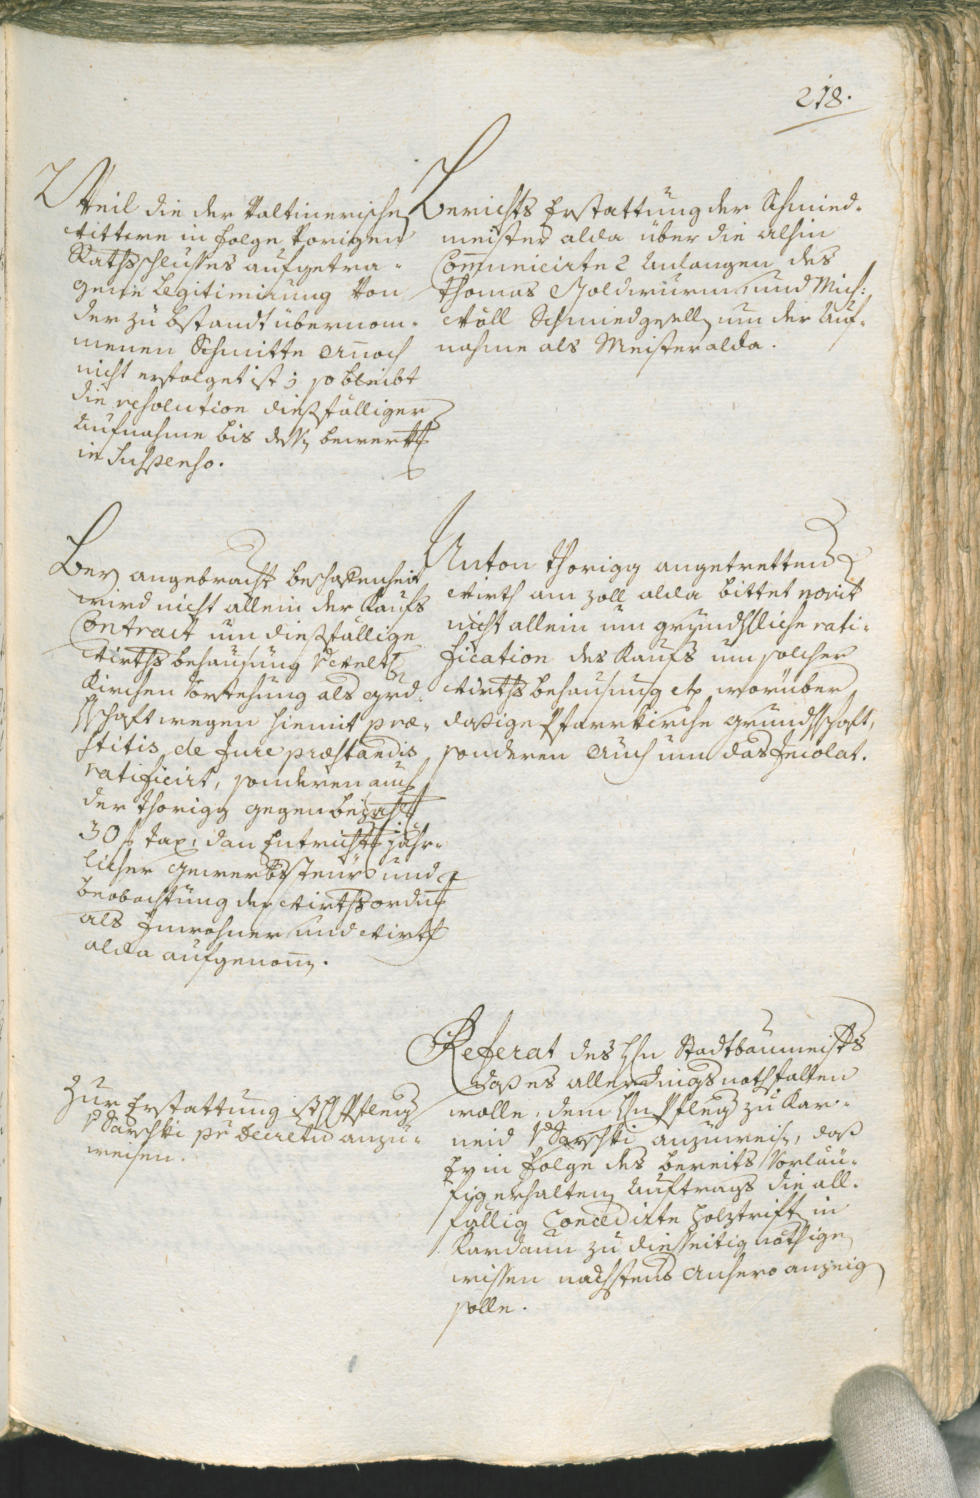 218.
Weil die der Valtinerischen
Wittere in folge Vorigen
Rathsschlusses aufgetra-
gene Legitimirung von
der zu bstandt übernom-
menen Schmitte annoch
nicht erfolget ist; so bleibt
die resolution diesfälliger
Aufnahme bis bewerkt
in Suspenso.
Berichts Erstattung der Schmied-
meister alda über die alhin
Communicirte 2 Anlangen des
Thomas Goldwurm und Mich:
Wöll Schmiedgesell um der Auf-
nahme als Meister alda.
Bey angebracht beschaffenheit
wird nicht allein der Kaufs
Contract um diesfällige
Wirths behausung
Kirchen Vorstehung als grd
schaft wegen hiemit præ-
stitis de Jure præstandis
ratificirt, sonderen auch
der Thorigg gegen bezahl
30 f tax, dan Entricht jähr-
licher gewerbsteur und
beobachtung der Wirthsordn
als Innwohner und Wirth
alda aufgenom.
Anton Thorigg angetrettener
Wirth am Zoll alda bittet
nicht allein um gründliche rati-
fication des Kaufs um solcher
Wirths behausung etc worüber
dasige Pfarrkirche grundschaft,
sonderen auch um das Incolat.
Zur Erstattung ist H Pfleg
v Sarchti pr Decretu anzu-
weisen.
Referat des Hn Stadtbaumeisters
das es allerdings nothfallen
wolle, dem Hn Pfleg zu Kar-
neid v Sarchti anzuweis, das
Er in folge des bereits Vorläu-
fig erhalten Auftrags die all-
fällig Concedirte Holztrift in
Kardaun zu diesseitig nöthigen
wissen nächstens anhero anzeig
solle.